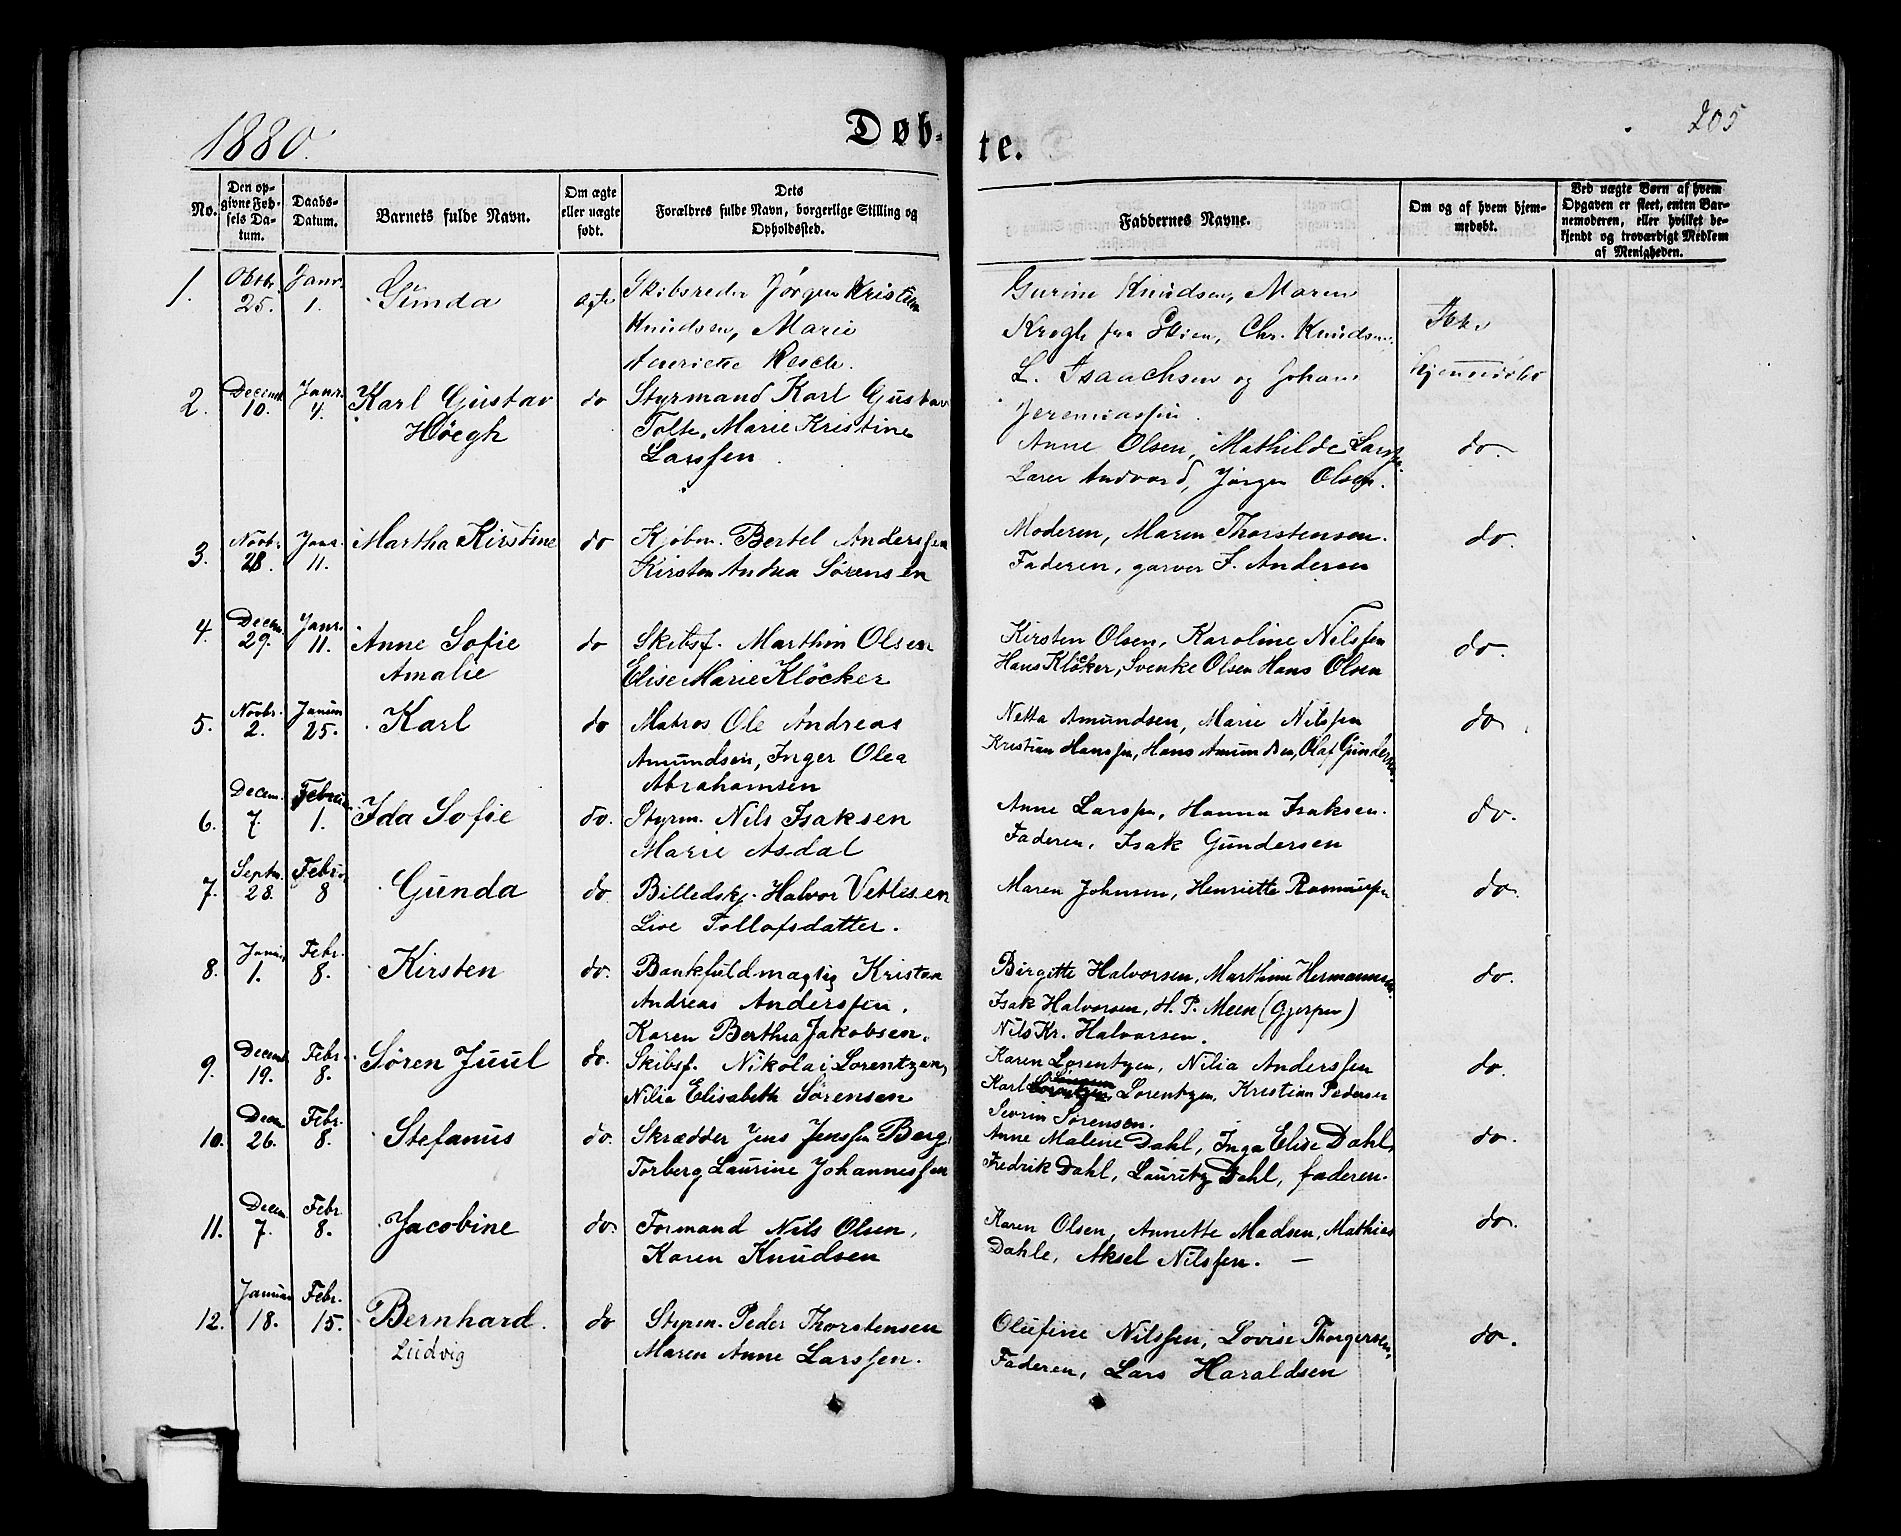 1880.
Døb-
te.
205
No.
Den op-
givne Fød-
sels Da-
tum.
Daabs-
Datum.
Barnets fulde Navn.
Om ægte
eller uægte
født.
Dets
Forældres fulde Navn, borgerlige Stilling og
Opholdssted.
Faddernes Navne.
Om og af hvem hjem-
medøbt.
Ved uægte Børn af hvem
Opgaven er skeet, enten Bar-
nemoderen, eller hvilket be-
kjendt og troværdigt Medlem
af Menigheden.
1. Oktbr. 25. Janr. 1. Gunda ægte Skibsreder Jørgen Kristian
Knudsen, Marie
Henriette Resch.
Gurine Knudsen, Maren
Krogh fra Skien, Chr. Knudsen,
L. Isaachsen og Johan
Jeremiassen.
Ikke
hjemmedøbt
2. Decemb. 10. Janr. 4. Karl Gustav do Styrmand Karl Gustav
Høegh
Tolte, Marie Kristine
Larssen
Anne Olsen, Mathilde
Jørgen Olsen. do.
3. Novb. 28. Janr. 11. Martha Kirstine do Kjøbm. Bertel Anderssen
Kirsten Andrea Sørensen
Moderen, Maren Thorstensen.
Faderen, garver F. Andersen
do.
4. Decem. 29. Janr. 11. Anne Sofie do Skibsf. Marthin Olsen
Amalie
Elise Marie Kløcker
Kirsten Olsen, Karoline Nilssen
Hans Kløcker, Svenke Olsen Hans Olsen
do.
5. Novbr. 2. Januar 25. Karl do Matros Ole Andreas
Amundsen, Inger Olea
Abrahamsen
Netta Amundsen, Marie Nilssen
Kristian Hanssen, Hans Amundsen, Olaf Gundersen.
do
6. Decem. 7. Februar 1. Ida Sofie do. Styrm. Nils Isaksen
Marie Asdal
Anne Larssen, Hanna Isaksen.
Faderen, Isak Gundersen
do.
7. Septm. 28. Febr. 8 Gunda do. Billedskj. Halvor Vetlesen
Live Tollofsdatter.
Maren Johnsen, Henriette
do.
8. Janu. 1. Febr. 8. Kirsten do. Bankfuldmægtig Kristan
Andreas Anderssen,
Karen Berthea Jakobsen.
Birgitte Halvorsen, Marthine Hermannsen.
Isak Halvorsen, H. P. Meen (Gjerpen)
Nils Kr. Halvorsen.
do.
9. Decemb. 19. Febr. 8. Søren Juul do. Skibsf. Nikolai Lorentzen,
Nilia Elisabeth Sørensen
Karen Lorentzen, Nilia Anderssen
Karl Lorentzen, Kristian Pedersen
Sevrin Sørensen.
do.
10. Decem. 26. Febr. 8. Stefanus do. Skrædder Jens Jenssen Berg,
Torberg Laurine Johannessen
Anne Malene Dahl, Inga Elise Dahl,
Fredrik Dahl, Lauritz Dahl, faderen.
do.
11. Decem. 7. Febr. 8. Jacobine do. Formand Nils Olsen,
Karen Knudsen
Karen Olsen, Annette Madsen, Mathias
Dahle, Aksel Nilssen. —
do.
12. Januar 18. Febr. 15. Bernhard do Peder Thorstensen
Ludvig
Maren Anne Larssen.
Olufine Nilssen, Lovise Thorgersen,
Faderen, Lars Haraldsen
do.